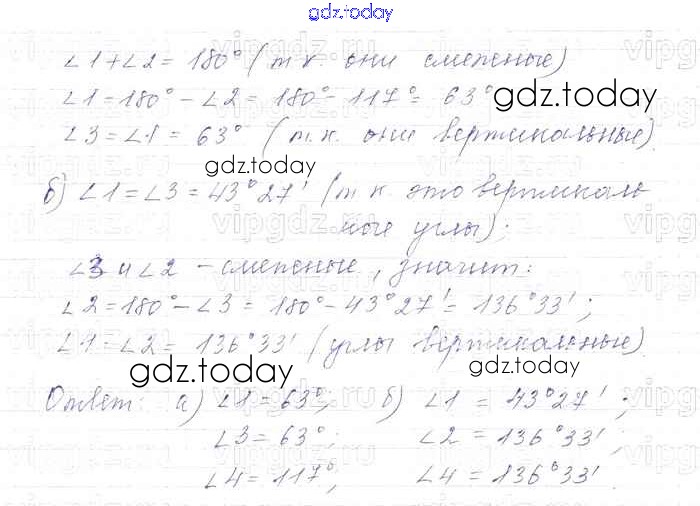 gdz.today
∠1+∠2= 180° (т к они смежные)
∠1=180° - ∠2 = 180° - 117° = 63°
gdz.today
∠3=∠1 = 63° (т.к. они вертикальные)
gdz.today
б) ∠1=∠3=43°27' (т к это вертикаль
ные углы);
∠3 и ∠2 - смежные, значит:
∠2=180°-∠3 = 180°-43°27' = 136°33';
∠4 - ∠2 = 136°33' (углы вертикальные)
gdz.today
gdz.today
Ответ: а) ∠1=63°, б) ∠1 = 43°27';
∠3=63°; ∠2 =136°33';
∠4=117°, ∠4 =136°33'